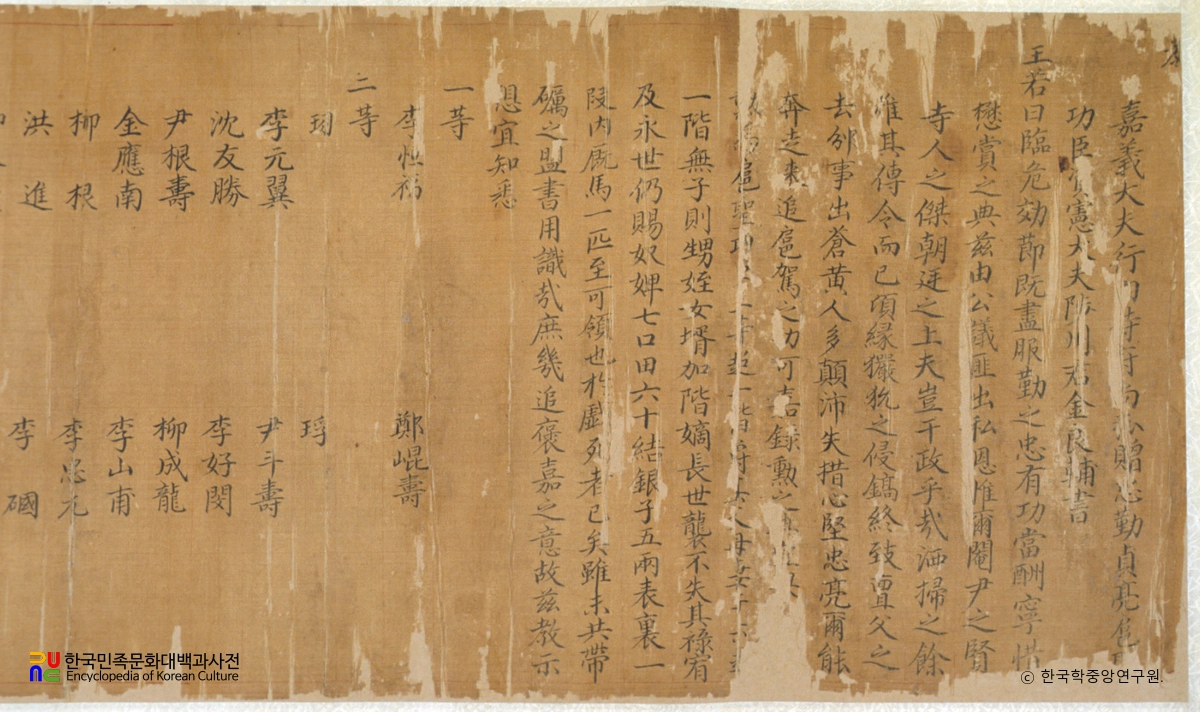 教
嘉義大夫行內侍府尙弘贈忠勤貞亮
功臣資憲大夫陟川君金良輔書
王若曰臨危効節既盡服勤之忠有功當酬寧惜
懋賞之典玆由公議匪出私恩惟爾閹尹之賢
寺人之傑朝廷之上夫豈干政乎哉洒掃之餘
唯其傳令而已頃緣玁狁之侵鎬終致亶父之
去邠事出蒼黃人多顚沛失措心堅忠亮爾能
奔走來追扈駕之功可嘉錄勳之
爲扈聖功 父母妻子
一階無子則甥姪女壻加階嫡長世襲不失其祿宥
及永世仍賜奴婢七口田六十結銀子五兩表裏一
段內廐馬一匹至可領也於戲死者已矣雖未共帶
礪之盟書用識哉庶幾追褒嘉之意故玆敎示
想宜知悉
一等
李恒福 鄭崐壽
二等
珝 琈
李元翼 尹斗壽
沈友勝 李好閔
尹根壽 柳成龍
金應南 李山甫
柳根 李忠元
洪進 李𥕏
한국민족문화대백과사전
Encyclopedia of Korean Culture
ⓒ 한국학중앙연구원.